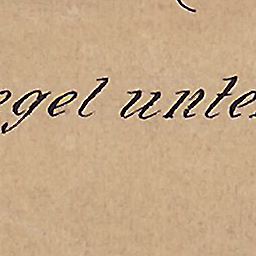 egel unte